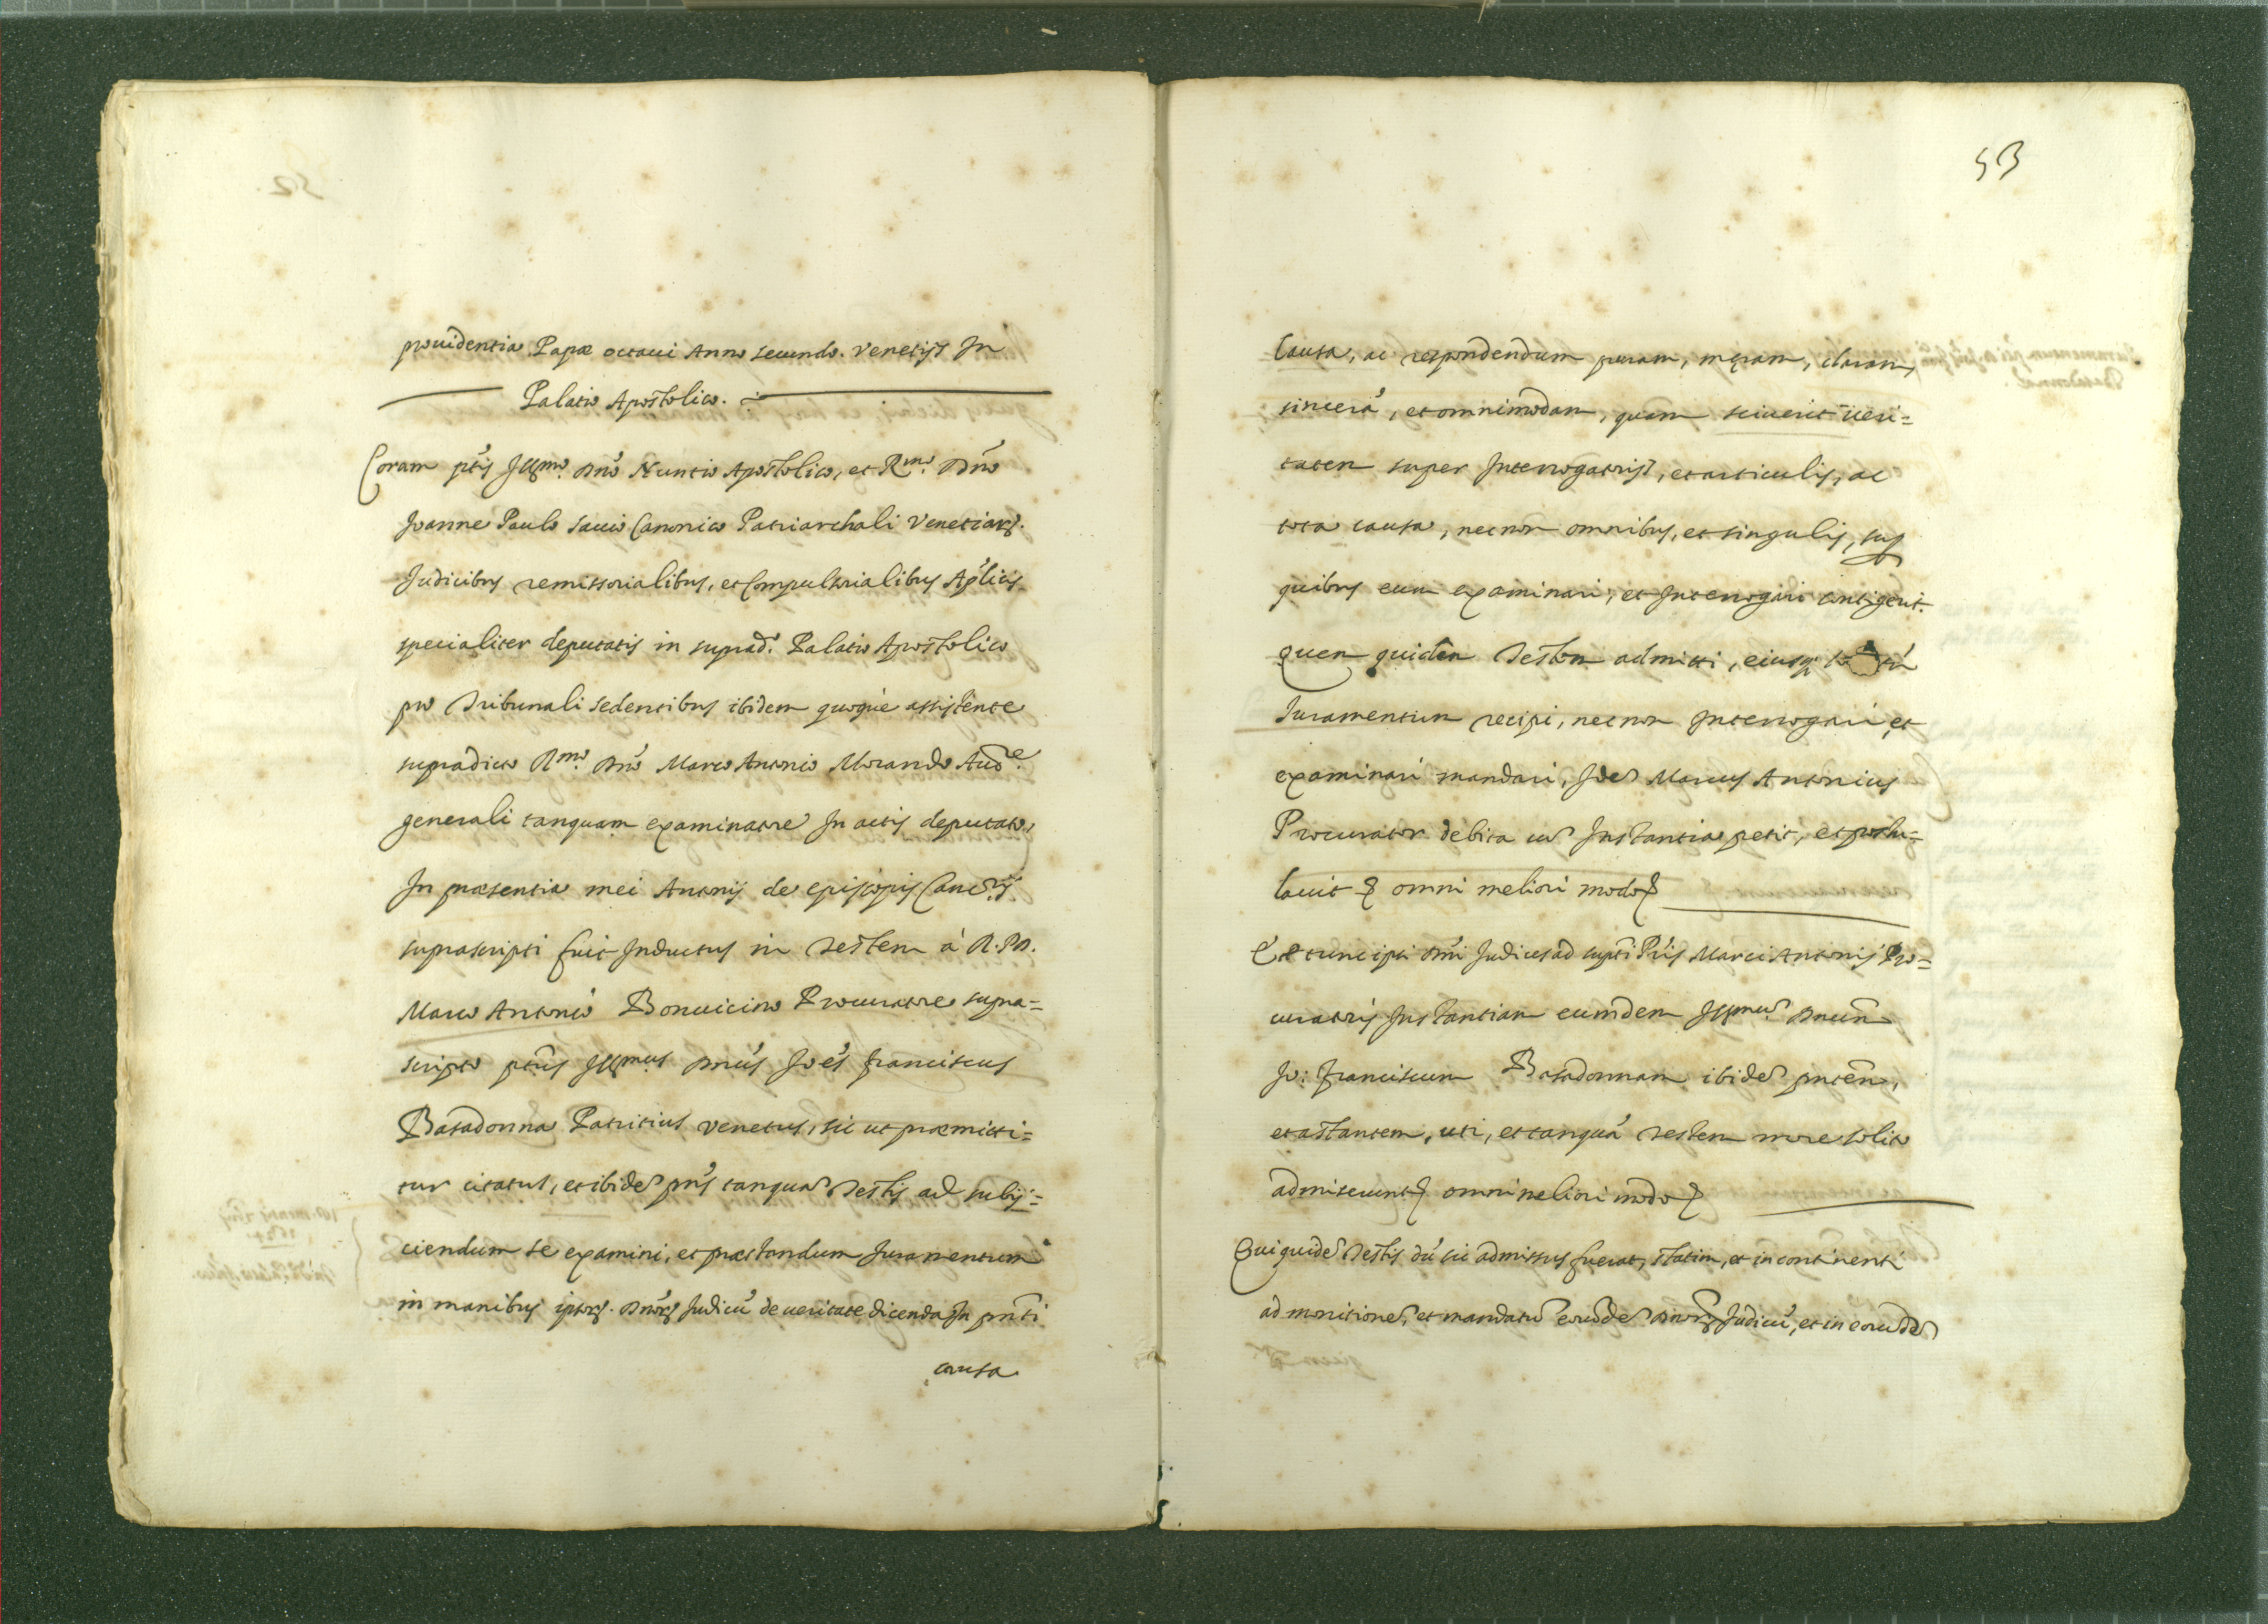 prouidentia Papæ octaui Anno secundo. Venetijs In
Palatio Apostolico.
Coram ptis Illmo. Dno Nuntio Apostolico, et Rmo. Dno
Joanne Paulo Sauio Canonico Patriarchali Venetiarꝫ.
Judicibus remissorialibus, et Compulsorialibus Aplicis
specialiter deputatis in suprad. Palatio Apostolico
pro Tribunali sedentibus ibidem quoque assistente
supradicto Rmo. Dno Marco Antonio Morando Aude
generali tanquam examinatore In actis deputato,
In præsentia mei Antonij de Episcopis Cancrij.
suprascripti fuit Inductus in Testem à R.P.D.
Marco Antonio Bonuicino Procuratore supra=
scripto ptus Illmus Dnus Joes Franciscus
Basadonna Patritius Venetus, sic ut præmitti=
tur citatus, et ibide pns tanqua Testis ad subij=
ciendum se examini, et præstandum Juramentum
in manibus ipsorꝫ. Dnorꝫ Judicu de ueritate dicenda In pnti
causa
53
Causa, ac respondendum puram, meram, claram,
sincera, et omnimodam, quam sciuerit ueri=
tatem super Interrogatorijs, et articulis, ac
tota causa, necnon omnibus, et singulis, sup
quibus eum examinari, et Interrogari contigerit.
quem quidem Testem admitti, eiusq
Juramentum recipi, necnon Interrogari et
examinari mandari, Ide Marcus Antonius
Procurator debita cu Instantia petit, et postu=
lauit & omni meliori modo &
Et tunc ipsi Dni Judices ad supti Pris Marci Antonij Pro=
curatoris Instantiam eumdem Illmu Dnum
Jo: Franciscum Basadonnam ibide pntem,
et astantem, uti, et tanqua testem more solito
admiserunt & omni meliori modo &
Qui quide Testis du sic admissus fuerat, statim, et incontinenti
ad monitione, et mandatu eorude Dnorꝫ Judicu, et in eorude